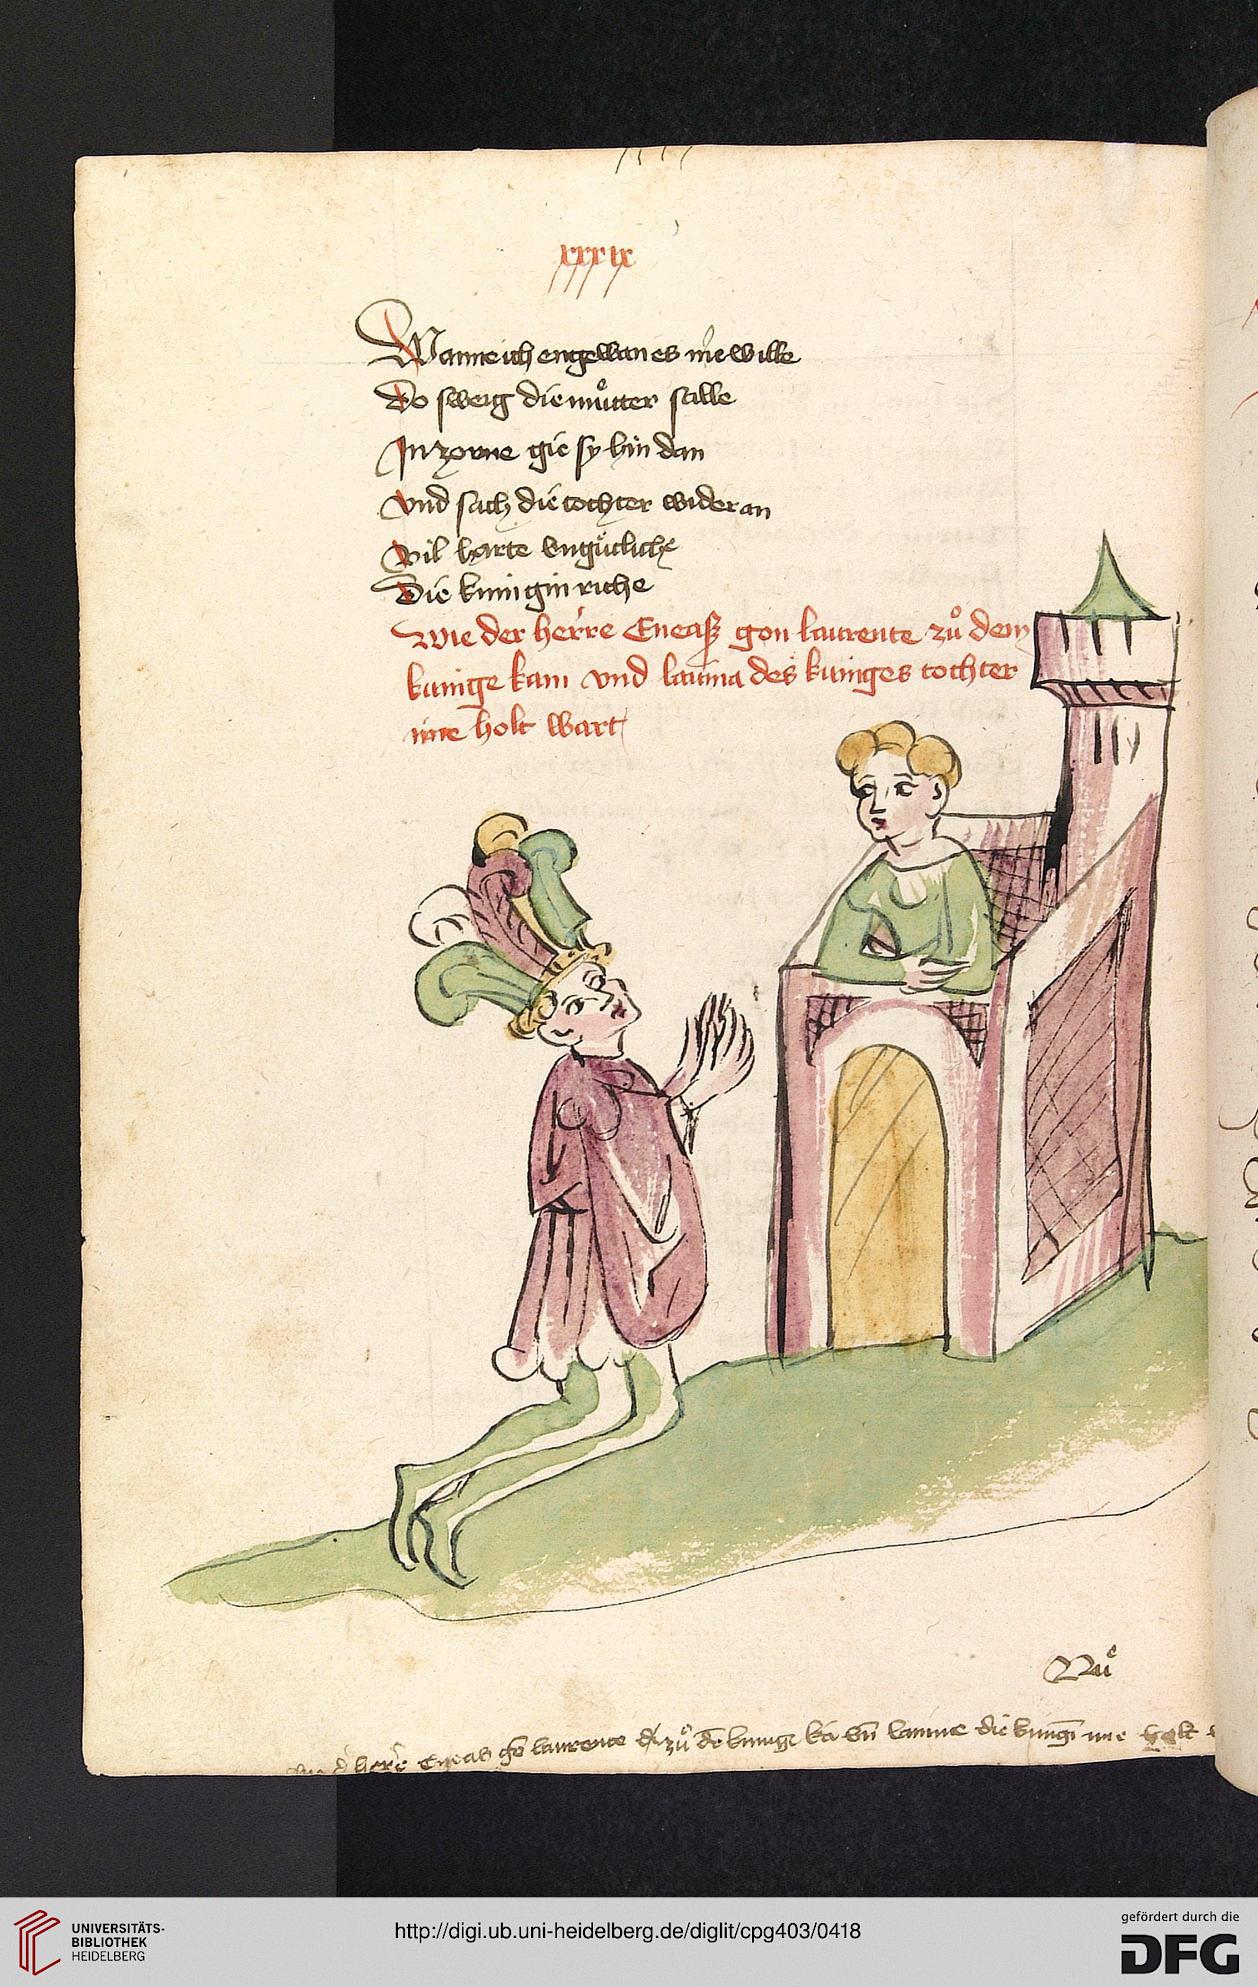 xxxix
Wanne ich engewan es nie wille
Do sweig die muͦtter stille
In zorne gie sy hin dan
Vnd sach die tochter wider an
Vil harte vnguͤtliche
Die kunigin riche
Wie der herre Eneas gon laurente zuͦ dem
kunige kam vnd lauina des kuniges tochter
ime holt wart
Nuͦ
herre Eneas gō laurente zuͦ dē kunige kā vn̄ lauine die kunigī ime holt
UNIVERSITÄTS-
BIBLIOTHEK
HEIDELBERG
http://digi.ub.uni-heidelberg.de/diglit/cpg403/0418
gefördert durch die
DFG